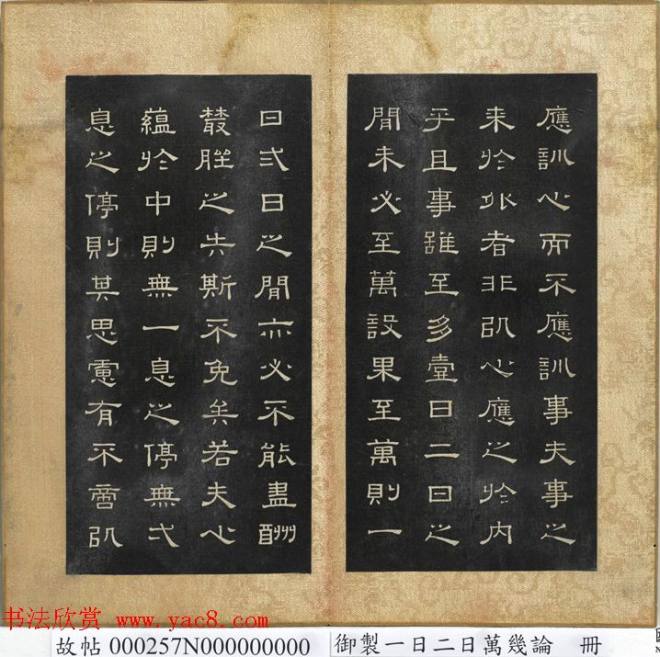 應訓心而不應訓事夫事之
来於外者非即心應之於内
乎且事雖至多壹日二日之
間未必至萬設果至萬則一
日弍日之間亦必不能盡酬
叢脞之失斯不免矣若夫心
蘊於中則無一息之停無弌
息之停則其思慮有不啻即
书法欣赏 www.yac8.com
故帖 000257N000000000
御製一日二日萬幾論 冊